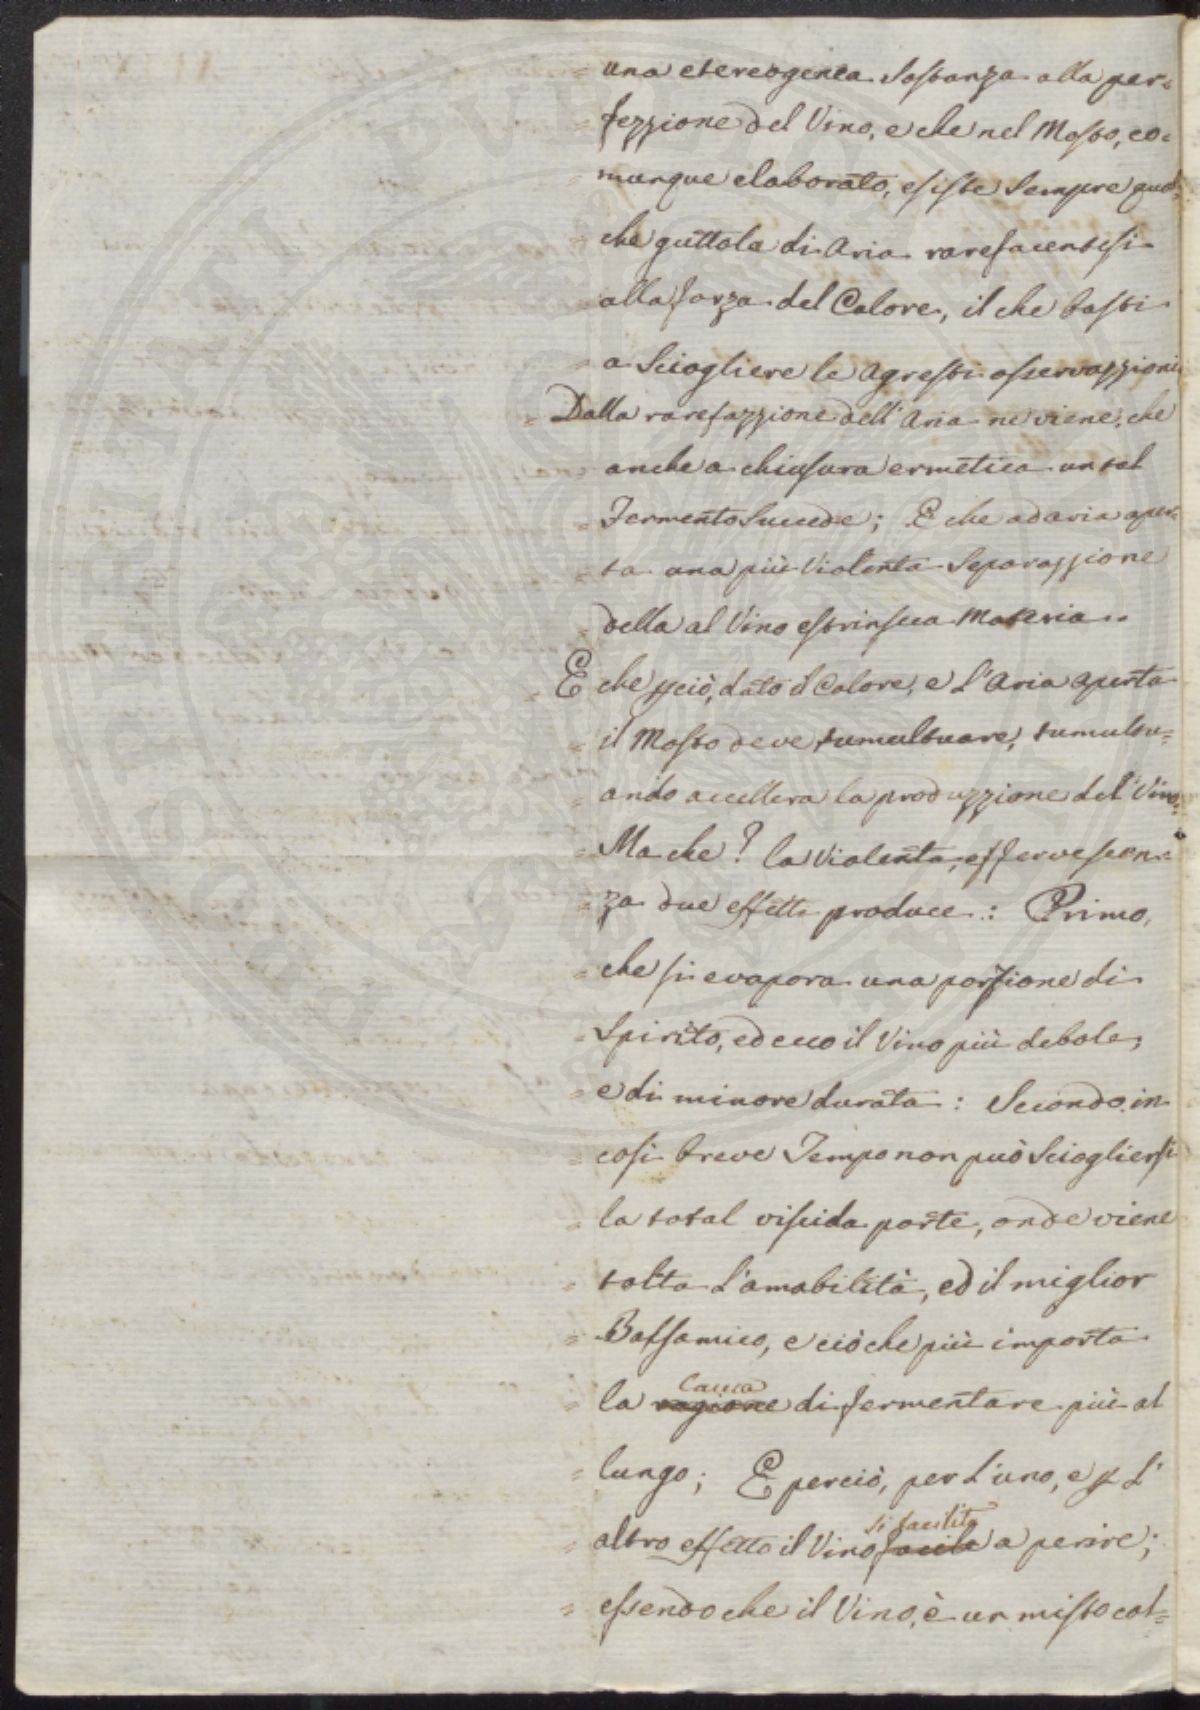 una etereogenea sostanza alla per=
fezzione del Vino, e che nel Mosto, co=
munque elaborato, esiste sempre qual=
che guttola di Aria rarefacentesi
alla forza del Calore, il che basti
a sciogliere le agresti osservazzioni
Dalla rarefazzione dell' Aria ne viene, che
anche a chiusura ermetica un tal
Fermento succede; E che ad aria aper=
ta una più violenta separazzione
della al Vino estrinseca Materia..
E che pciò, dato il Calore, e l'Aria aperta
il Mosto deve tumultuare, tumultu=
ando accellera la produzzione del Vino.
Ma che? la violenta effervescen=
za due effetti produce: Primo,
che si evapora una porzione di
Spirito, ed ecco il Vino più debole,
e di minore durata: Secondo, in
così breve Tempo non può sciogliersi
la total viscida parte, onde viene
tolta l'amabilità, ed il miglior
Balsamico, e ciò che più importa
causa
la ragione di fermentare più al
lungo; E perciò, per l'uno, e p l'
si facilita
altro effetto il Vino facile a perire;
essendo che il Vino, è un misto col=